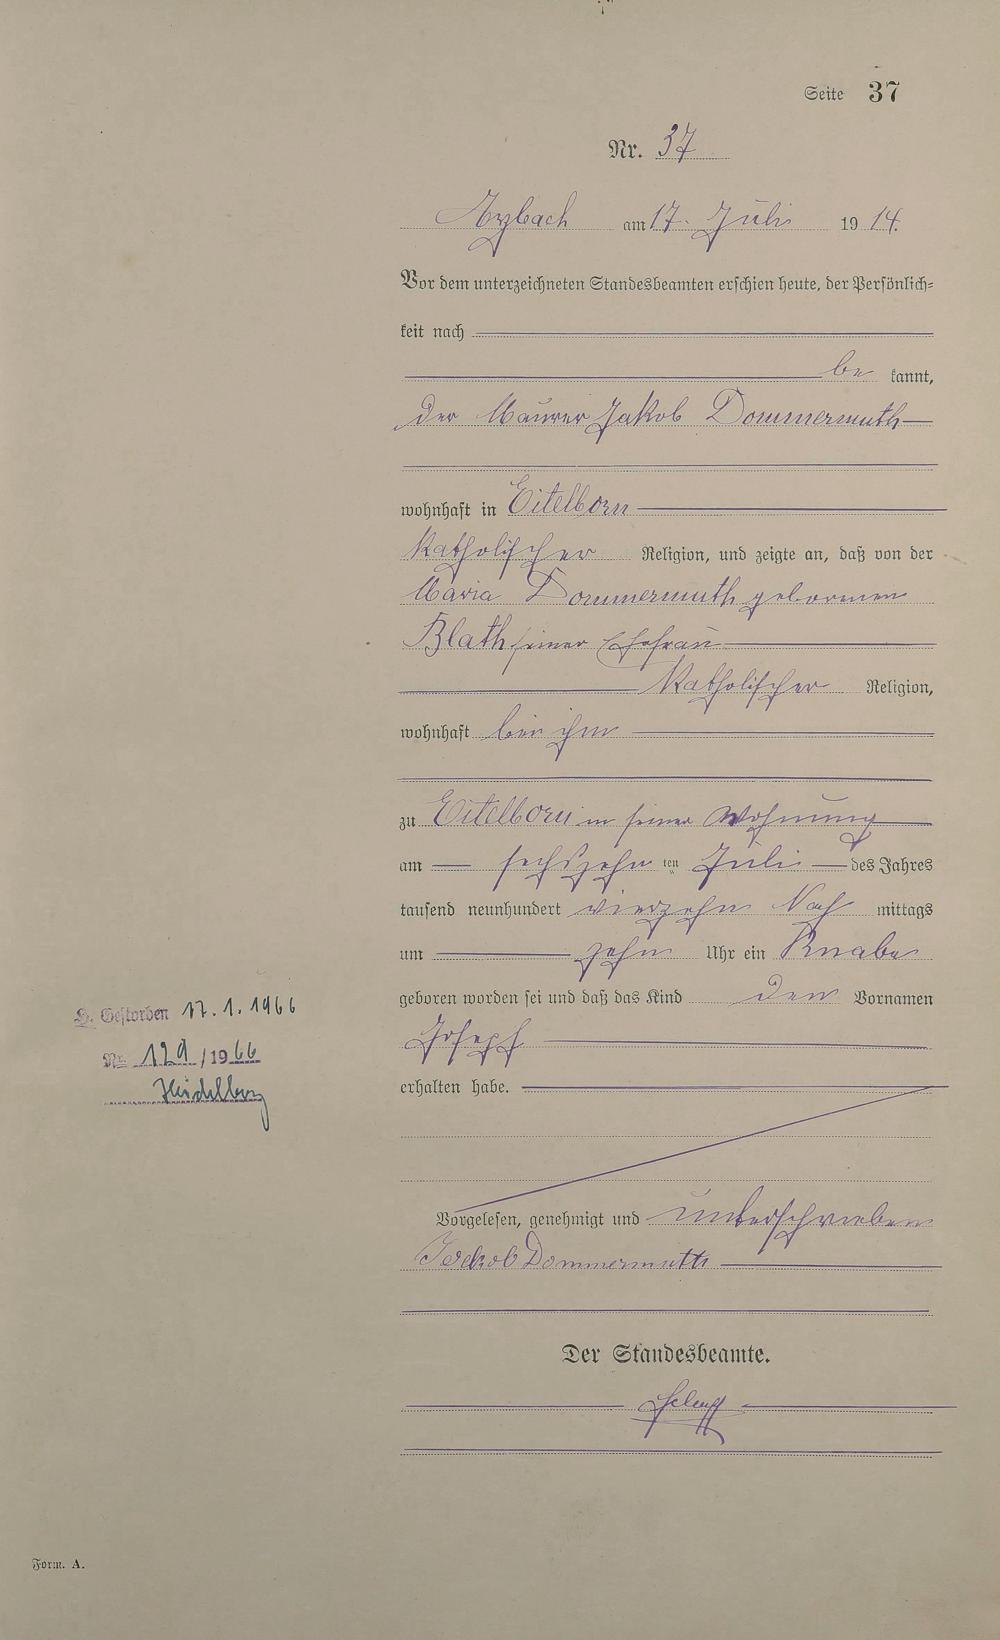 Seite 37
Nr. 37
Arzbach am 17. Juli 19 14.
Vor dem unterzeichneten Standesbeamten erschien heute, der Persönlich=
keit nach
be kannt,
der Maurer Jakob Dommermuth
wohnhaft in Eitelborn
katholischer Religion, und zeigte an, daß von der
Maria Dommermuth geborenen
Blath seiner Ehefrau
katholischer Religion,
wohnhaft bei ihm
zu Eitelborn in seiner Wohnung
am sechszehn ten Juli des Jahres
tausend neunhundert vierzehn Nach mittags
um zehn Uhr ein Knabe
geboren worden sei und daß das Kind den Vornamen
Joseph
erhalten habe.
Vorgelesen, genehmigt und unterschrieben
Jakob Dommermuth
Der Standesbeamte.
Gestorben 17.1.1966
Nr. 129/1966
Heidelberg
Form. A.